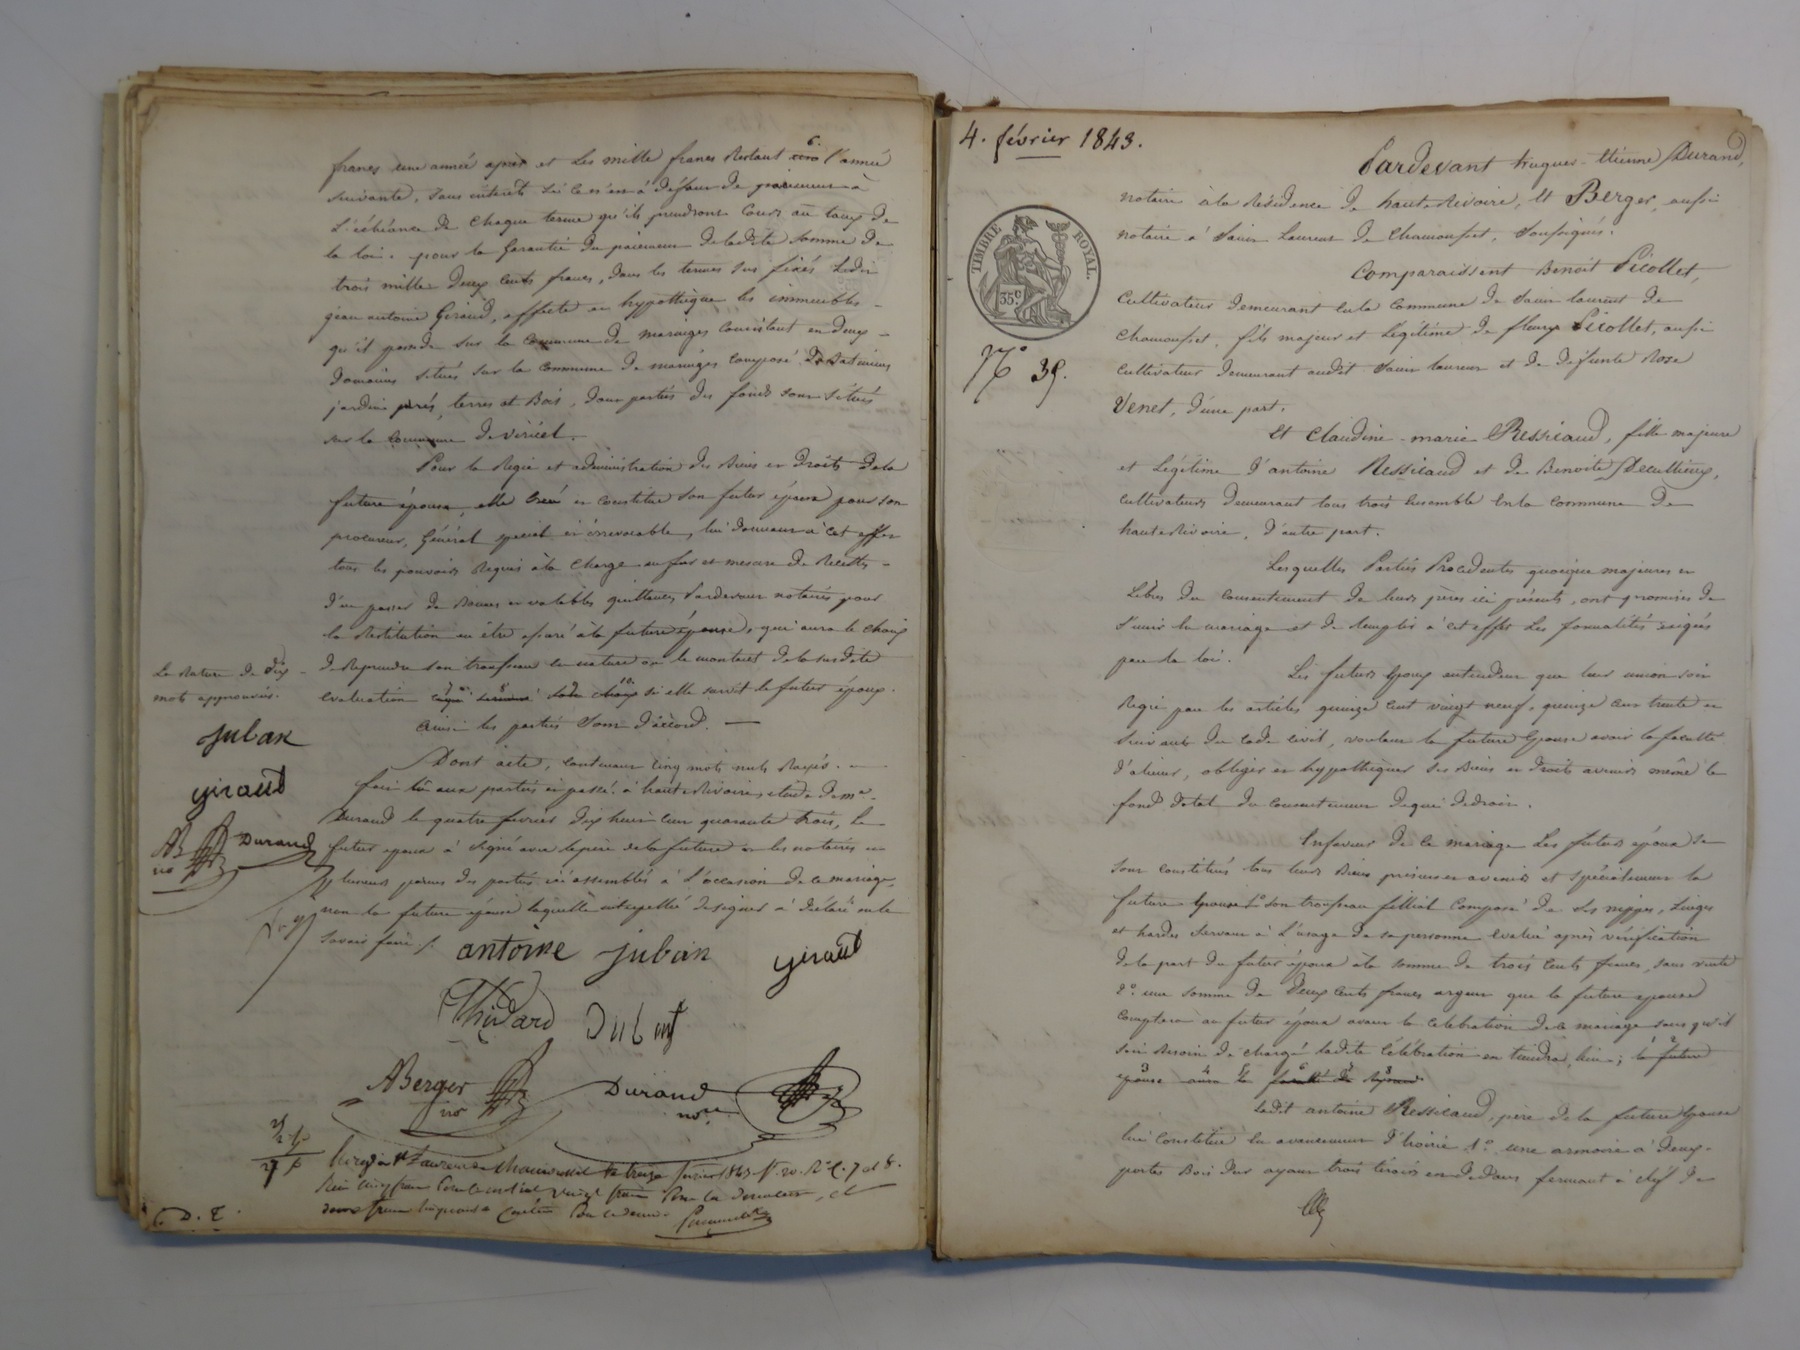 francs une année après et les mille francs restant 6. l'année
suivante, sans intérêt si ce n'est à défaut de paiement à
l'échéance de chaque terme qu'ils prendront cours au taux de
la loi. pour la garantie du paiement de ladite somme de
trois mille deux cents francs, dans les termes sus fixés ledit
jean antoine Giraud, affecte en hypothèque les immeubles
qu'il possède sur la commune de maringes consistant en deux
domaines situés sur la commune de maringes composé de Batiments
jardin prés, terres et Bois, dont parties des fonds sont situés
sur la commune de viricel.
Pour la Régie et administration des Biens et droits de la
future épouse, elle créé et constitue son futur époux pour son
procureur, Général spécial et irrévocable, lui donnant à cet effet
tous les pouvoirs Requis à la charge au fur et mesure de Recettes
d'en passer de Bonnes et valables quittances Pardevant notaires pour
la Restitution en être opéré à la future épouse, qui aura le choix
de Reprendre son trousseau en nature ou le montant de la susdite
évaluation si elle survit le futur époux.
ainsi les parties sont d'accord. —
Le Rature de Dix
mots approuvés.
juban
giraud
AB
no
Durand
Dont acte, contenant Cinq mots nuls Rayés.
fait lu aux parties et passé à haute Rivoire, étude de me
Durand le quatre février dix huit cent quarante trois, le
futur époux à signé avec le père de la future et les notaires et
plusieurs parens des parties ici assemblés à l'occasion de ce mariage,
non la future épouse laquelle interpellée de signer à déclaré ne le
savoir faire /.
antoine juban giraud
Thivard Dubost
ABerger
no
Durand
nore
C. D. E.
4. février 1843.
TIMBRE ROYAL.
35c
No 39.
Pardevant hugues-Etienne Durand,
notaire à la Résidence de haute Rivoire, et Berger, aussi
notaire à Saint Laurent de Chamousset, Soussignés.
Comparaissent Benoît Picollet,
Cultivateur demeurant en la Commune de Saint laurent de
Chamousset, fils majeur et Légitime de fleury Picollet, aussi
cultivateur demeurant audit Saint laurent et de défunte Rose
Venet, d'une part.
Et Claudine-marie Ressicaud, fille majeure
et Légitime d'antoine Ressicaud et de Benoite Decultieux,
cultivateurs demeurant tous trois ensemble en la commune de
haute Rivoire, d'autre part.
Lesquelles Parties Procédentes quoique majeures et
Libres du consentement de leurs pères ici présents, ont promises de
s'unir en mariage et de Remplir à cet effet les formalités exigées
par la loi.
Les futurs époux entendent que leur union soit
Régie par les articles quinze cent vingt neuf, quinze cent trente et
suivants du code civil, voulant la future épouse avoir la faculté
d'aliener, obliger et hypothéquer ses Biens et droits avenirs même le
fond dotal du consentement de qui de droit.
En faveur de ce mariage les futurs époux se
sont constitués tous leurs Biens présents et avenirs et spécialement la
future épouse 1° son trousseau filliat composé de ses nippes, linges
et hardes servant à l'usage de sa personne évalué après vérification
de la part du futur époux à la somme de trois cents francs, sans vente
2°. une somme de deux cents francs argent que la future épouse
comptera au futur époux avant la célébration de ce mariage sans qu'il
soit Besoin de charge ladite célébration en tiendra lieu; la future
épouse aura la faculté de
Ledit antoine Ressicaud, père de la future épouse
lui constitue en avancement d'hoirie 1°. une armoire à deux
portes Bois dur ayant trois tiroirs en dedans fermant à clef de